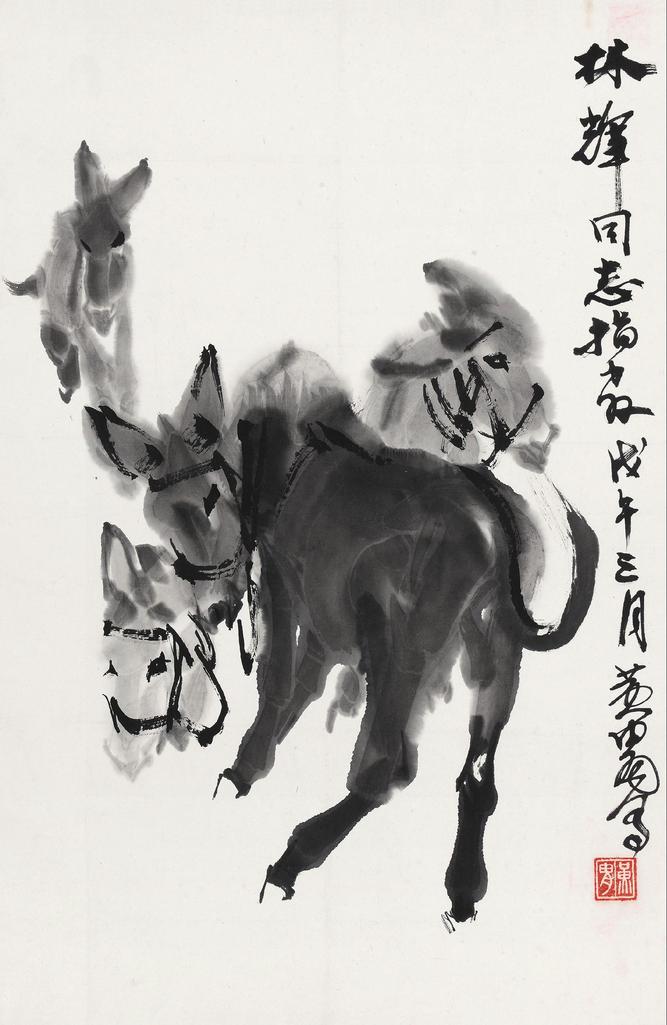 林辉同志指教戊午三月黄胄写
黄胄